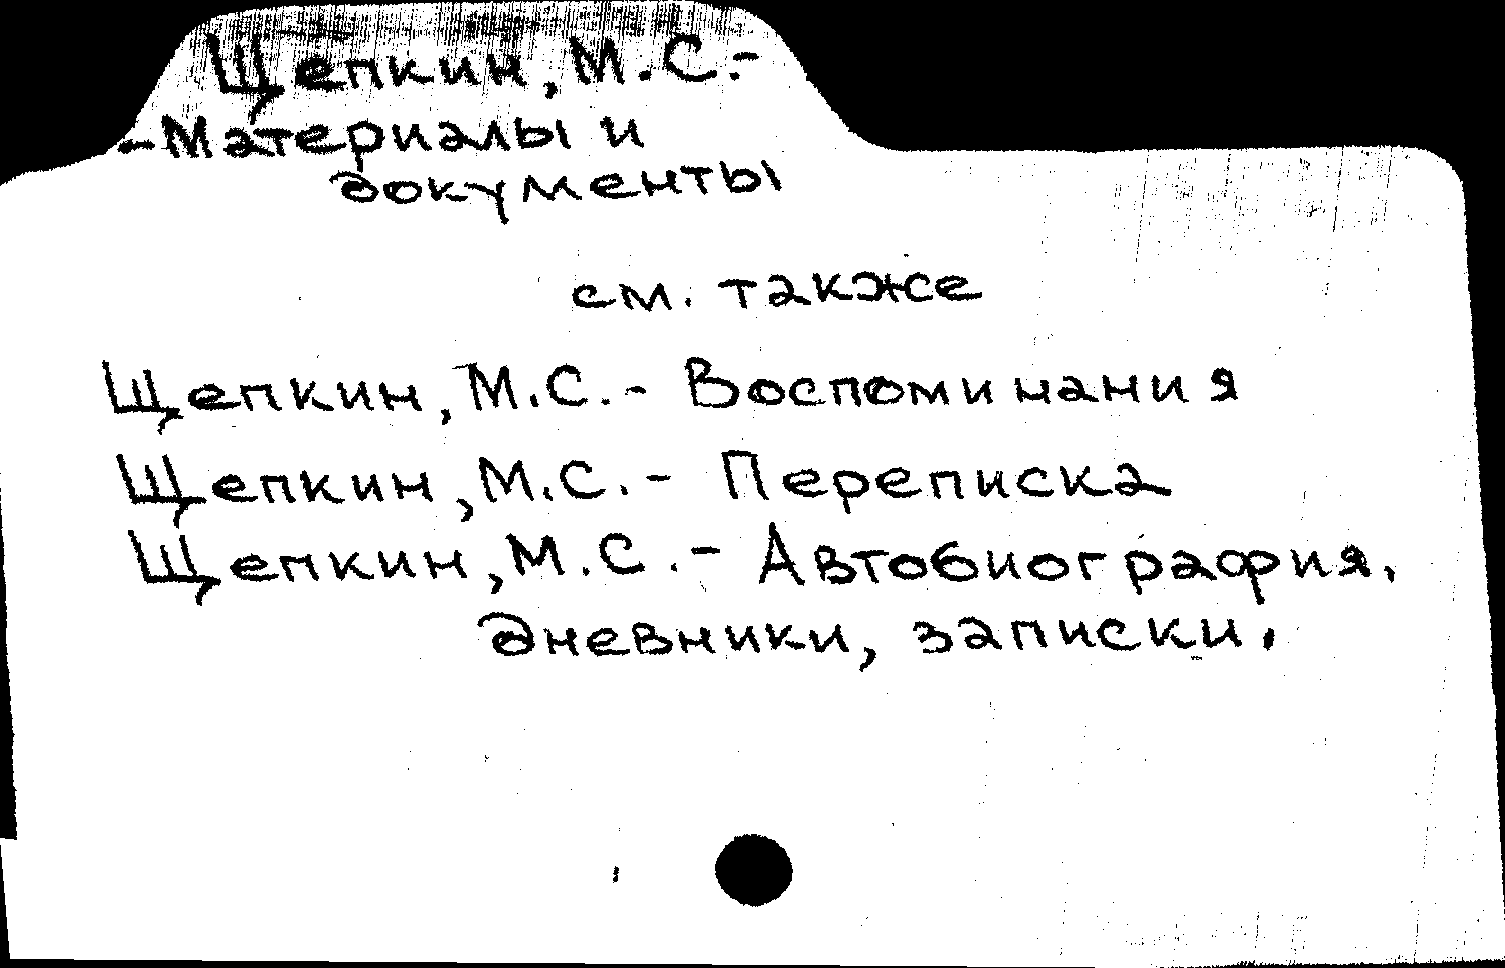 Щепкин, М.С.-
-Материалы и
документы
см. также
Щепкин, М.С.- Воспоминания
Щепкин, М.С.- Переписка
Щепкин, М.С.- Автобиография,
дневники, записки.